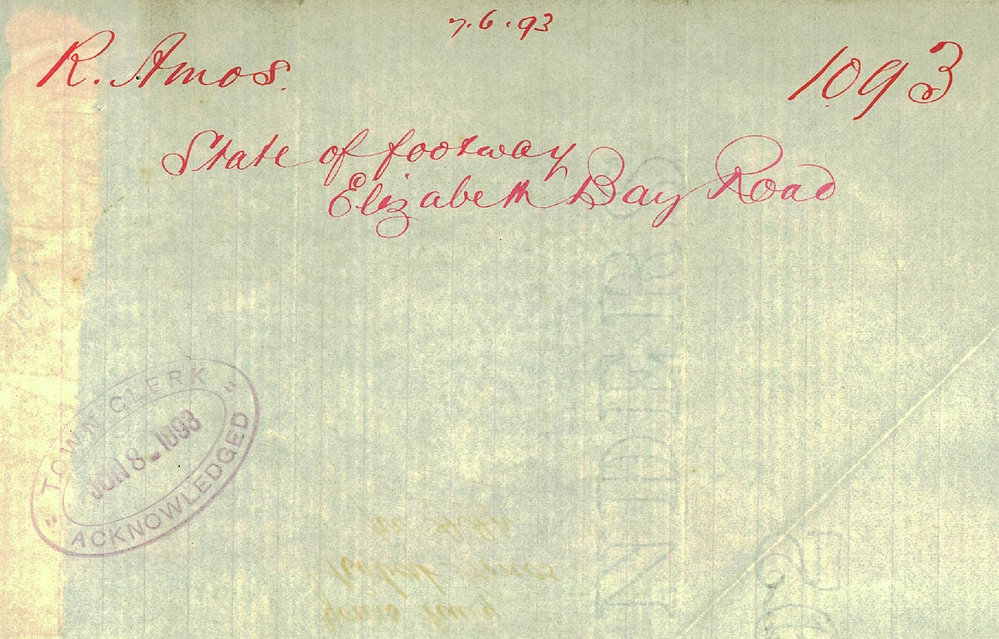 7.6.93
R. Amos. 1093
State of footway
Elizabeth Bay Road
TOWN CLERK
JUN 8-1893
ACKNOWLEDGED